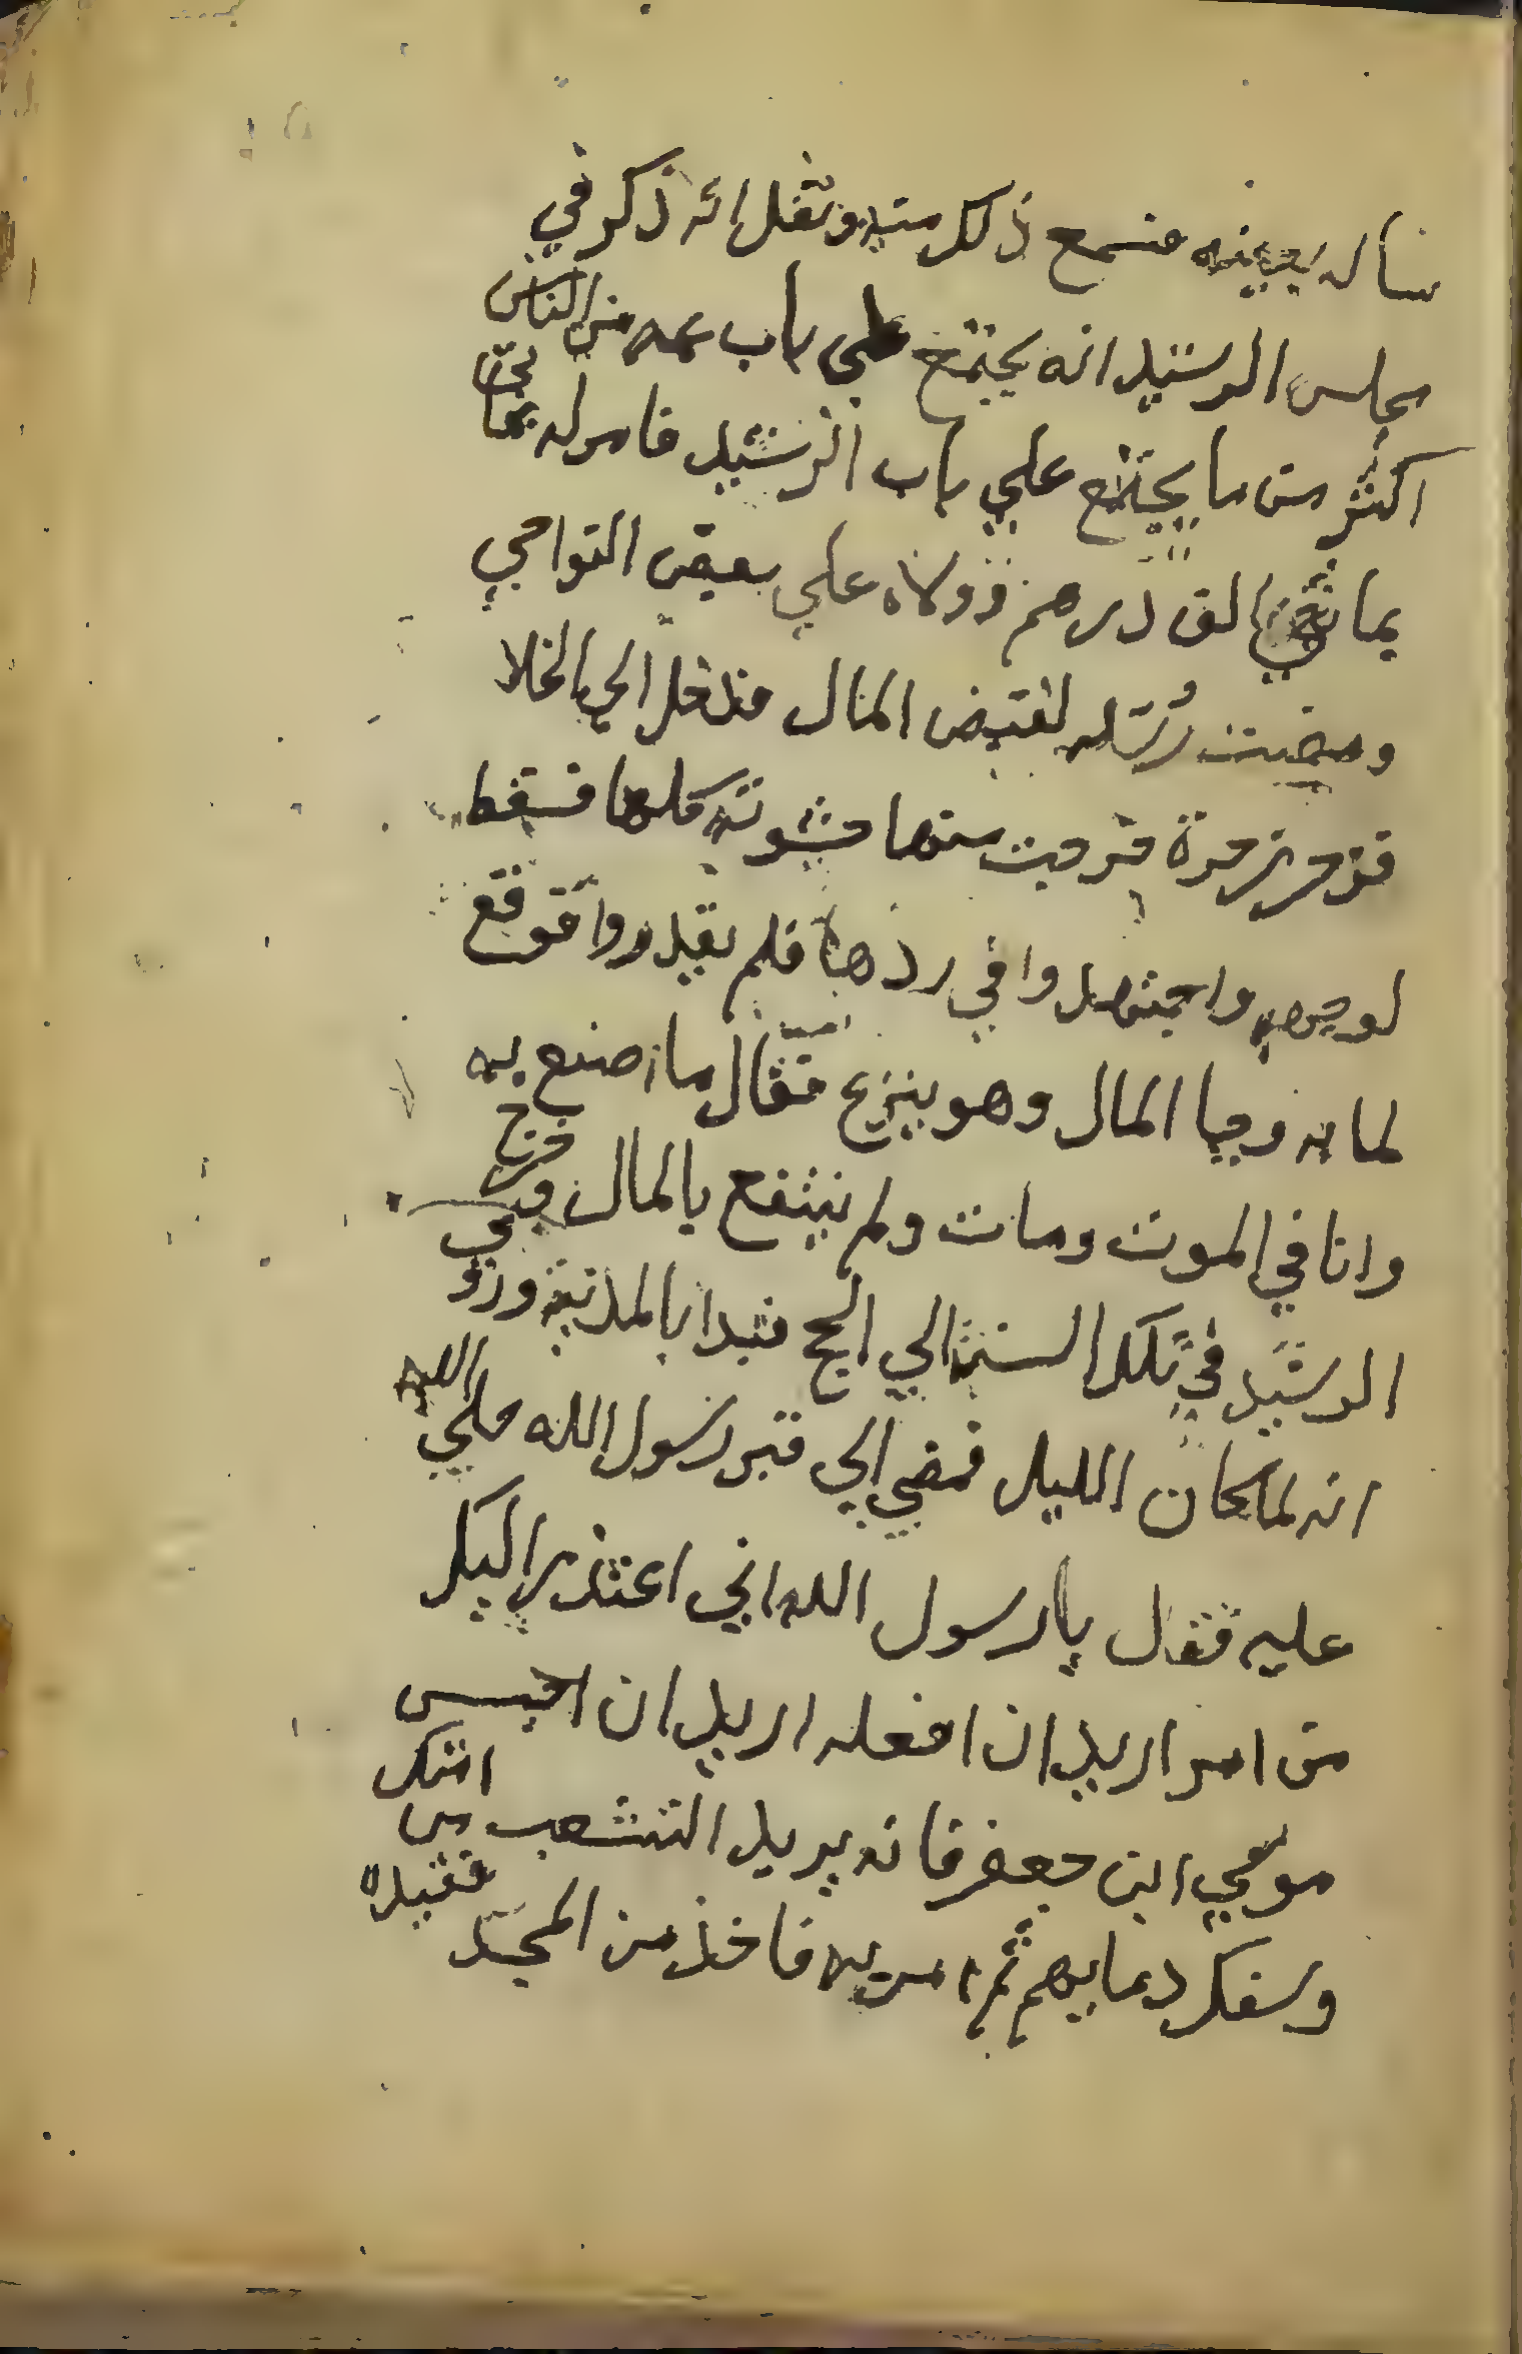 ساله بعينه فسمع ذلك منه ونقل انه ذكر في
مجلس الرشيد انه يجتمع علي باب عمه من الناس
اكثر من ما يجتمع علي باب الرشيد فامر له
بمايتي الف درهم وولاه علي بعض النواحي
ومضيت رسله لقبض المال فدخل الي الخلا
فزحر زحرة خرجت منها حشوته كلها فسقط
لوجهه واجتهدوا في ردها فلم يقدروا فوقع
لما به وجا المال وهو ينزع فقال ما اصنع به
وانا في الموت ومات ولم ينتفع بالمال وخرج
الرشيد في تلك السنة الي الحج فبدا بالمدينة وروي
انه لما كان الليل فمضي الي قبر رسول الله صلي الله
عليه فقال يا رسول الله اني اعتذر اليك
من امر اريد ان افعله اريد ان احبس
موسي ابن جعفر فانه يريد التشعب بين امتك
وسفك دمايهم ثم امر به فاخذ من المسجد فقيده